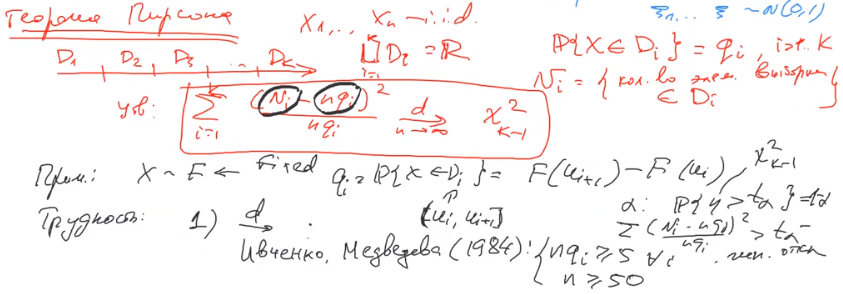 Теорема Пирсона
X₁, ... Xₙ – i.i.d.
ξ₁, ... ξ ~ N(0,1)
D₁ D₂ D₃ ... D_k
⨆_{i=1}^{k} D_i = ℝ
ℙ{X ∈ D_i} = q_i, i=1..K
N_i = {кол. во элем. выборки ∈ D_i}
Утв: ∑_{i=1}^{k} (N_i – nq_i)² / nq_i →^d_{n→∞} χ²_{k-1}
Прим.: X ~ F ← Fixed q_i = ℙ{X ∈ D_i} = F(u_{i+1}) – F(u_i)
[u_i, u_{i+1}]
χ²_{k-1}
α: ℙ{η > t_α} = 1-α
∑ (N_i – nq_i)² / nq_i > t_α –
Трудность: 1) →^d .
Ивченко, Медведева (1984): { nq_i ≥ 5 ∀i
n ≥ 50